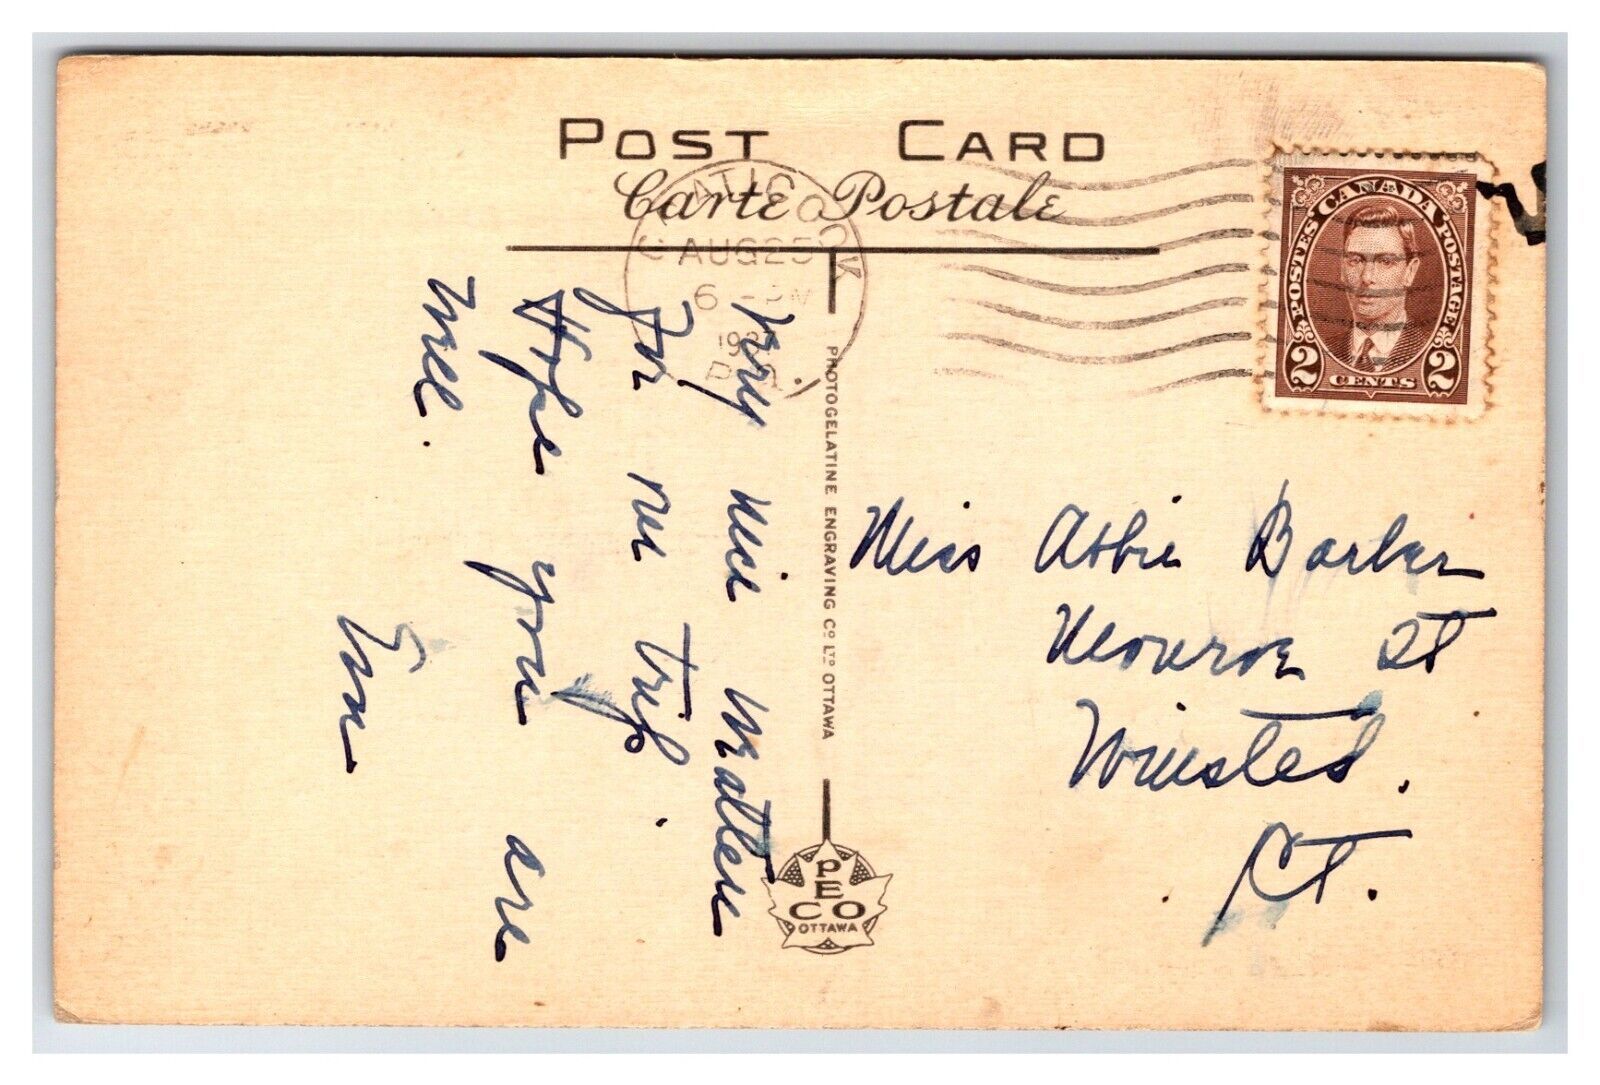 POST CARD
Carte Postale
COATICOOK
AUG 25
6 PM
P.Q.
CANADA
POSTES POSTAGE
2 CENTS 2
Very nice
for our trip.
Hope you are
well.
PHOTOGELATINE ENGRAVING CO LTD OTTAWA
PECO
OTTAWA
Miss Abbie Barber
Monroe St
Winsted.
Ct.